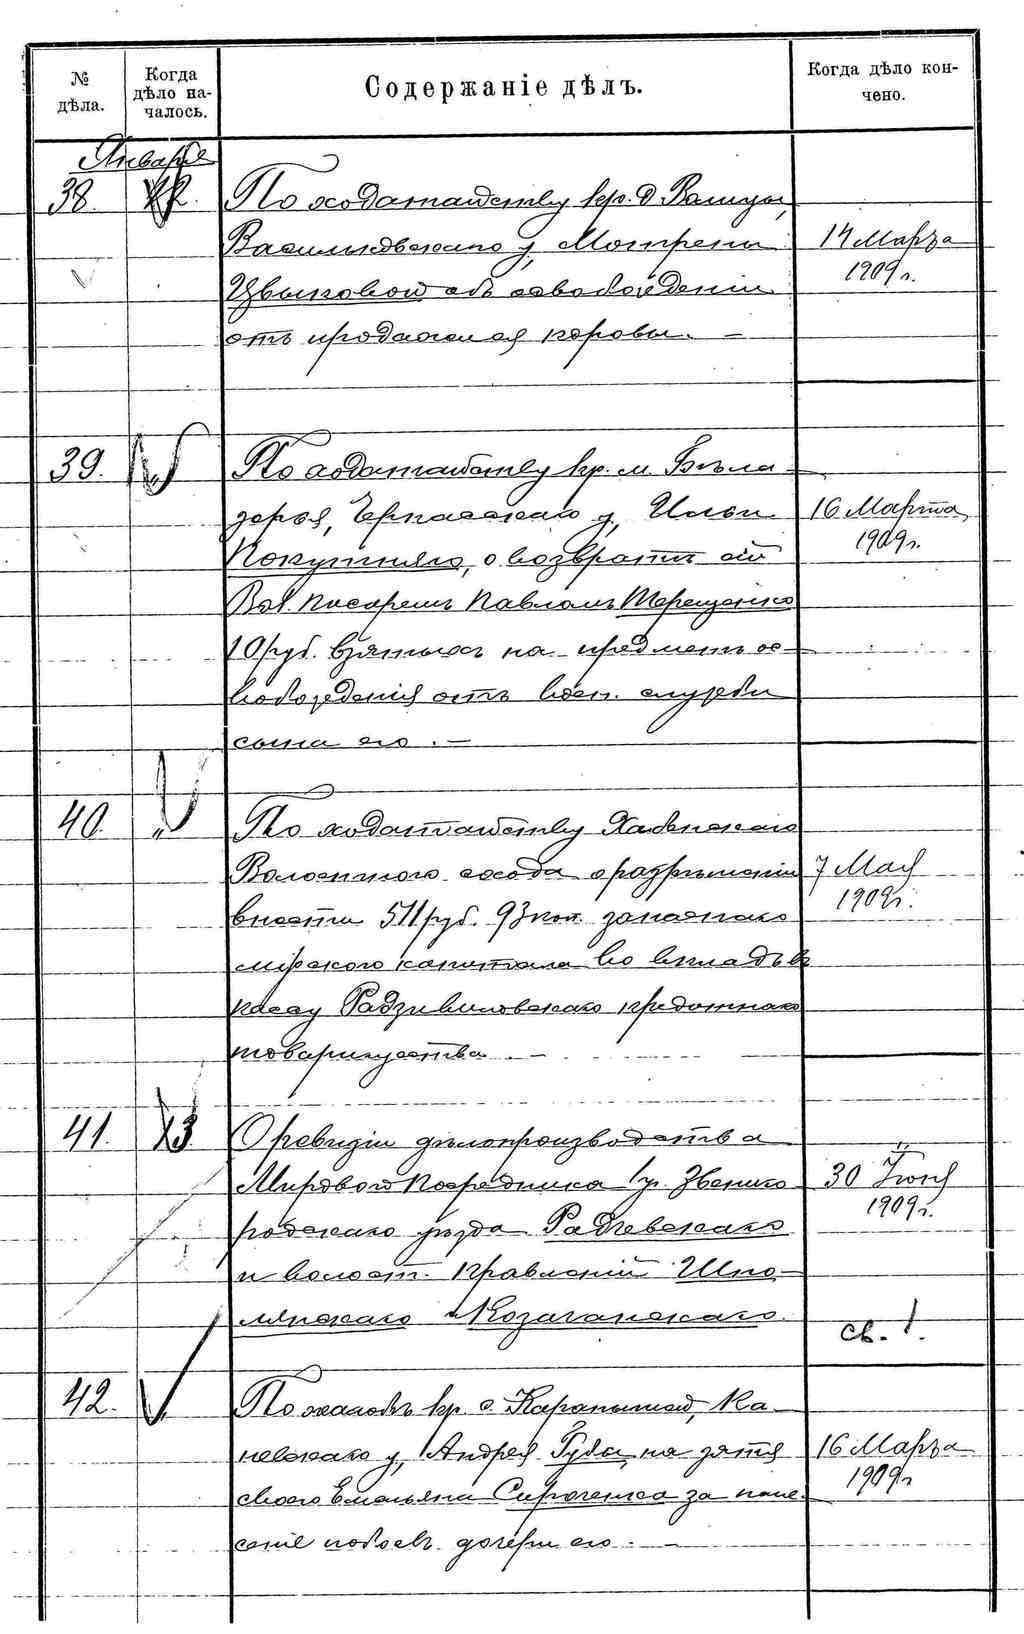 № дѣла.
Когда дѣло на-
чалось.
Содержаніе дѣлъ.
Когда дѣло кон-
чено.
Января
38. 22. По ходатайству кр. д.
Васильковскаго у, Мотрены 14 Марта
Цвыковой объ освобожденіи 1909 г.
отъ продажи ея коровы. —
39. „ По ходатайству кр. м. Бѣла-
зерья, Черкасскаго у, Ильи 16 Марта
Покутняго, о возвратѣ ему 1909 г.
Вол. писаремъ Павломъ Терещенко
10 руб. взятыхъ на предметъ ос-
вобожденія отъ воен. службы
сына его. —
40. „ По ходатайству Хабенскаго
Волостного схода о разрѣшеніи 7 Мая
внести 511 руб. 93 коп. запаснаго 1909 г.
мірского капитала во вкладъ въ
кассу Радзивиловскаго кредитнаго
товарищества. —
41. 23 О ревизіи дѣлопроизводства
Мирового Посредника 1 уч. Звениго- 30 Іюня
родскаго уѣзда Радчевскаго 1909 г.
и волост. правленій Шпо-
лянскаго и Козачанскаго. св. 1.
42. „ По жалобѣ кр. с. Карапышей, Ка-
невскаго у, Андрея Губы, на зятя 16 Марта
своего Емельяна Сироченка за нане- 1909 г.
сеніе побоевъ дочери его. —